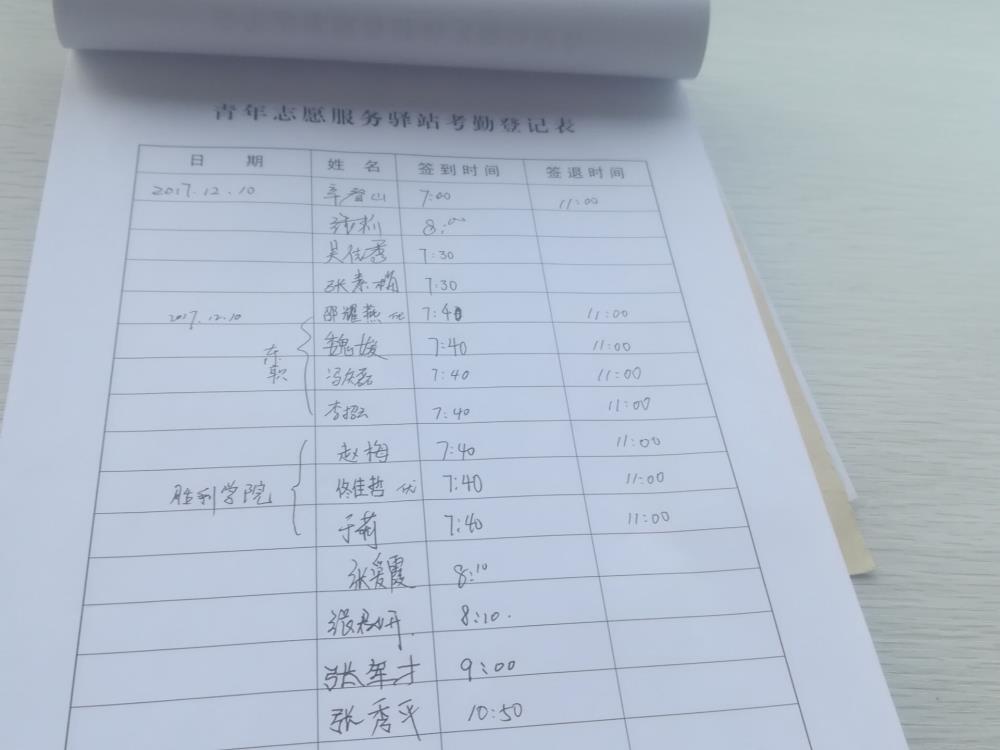 青年志愿服务驿站考勤登记表
日 期 姓 名 签到时间 签退时间
2017.12.10 辛智山 7:00 11:00
张利 8:00
吴佳秀 7:30
张素梅 7:30
2017.12.10 邵耀燕 优 7:40 11:00
东职 魏媛 7:40 11:00
冯庆磊 7:40 11:00
李招云 7:40 11:00
赵梅 7:40 11:00
胜利学院 佟佳哲 优 7:40 11:00
于莉 7:40 11:00
张爱霞 8:10
8:10.
张军才 9:00
张秀平 10:50